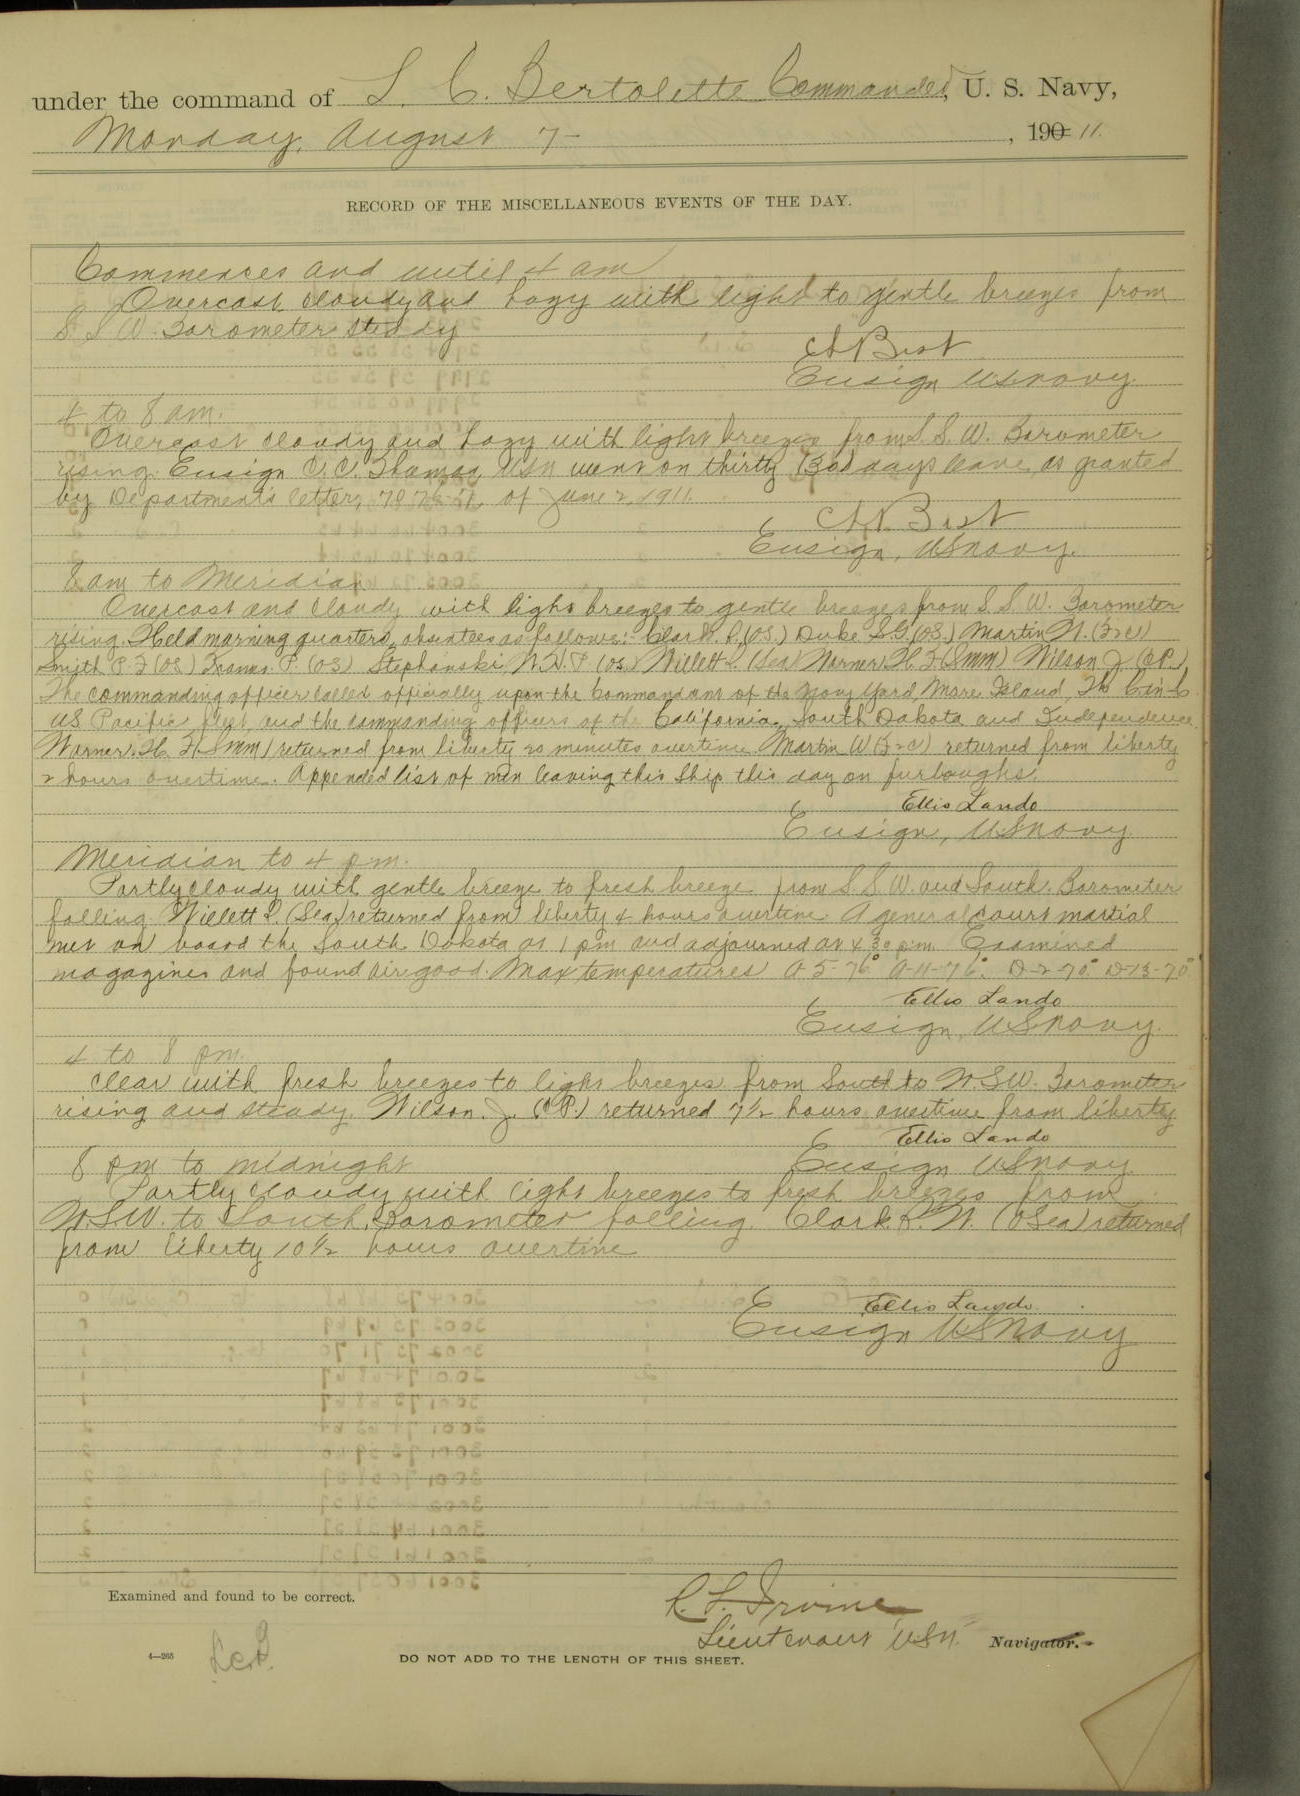 under the command of L. C. Bertolette Commander, U. S. Navy,
Monday, August 7- , 190 11.
RECORD OF THE MISCELLANEOUS EVENTS OF THE DAY.
Commences and until 4 am
Overcast cloudy and hazy with light to gentle breezes from
S. S. W. Barometer steady
Ensign US Navy.
4 to 8 am.
Overcast cloudy and hazy with light breezes from S. S. W. Barometer
rising. Ensign C. C. Thomas, USN went on thirty (30) days leave, as granted
by Departments letter, of June 2, 1911.
Ensign, US Navy.
8 am to Meridian
Overcast and cloudy with light breezes to gentle breezes from S. S. W. Barometer
rising. Held morning quarters, absentees as follows:- Clark. (OS.) Duke S.G. (OS.) Martin W. (F2c)
Smith P. F (OS) P. (OS) Stephanski, W. (OS.) Willett L. (Sea) Warner, H. F (SMM) Wilson J (CP.)
The commanding officer called officially upon the Commandant of the Navy Yard Mare Island, The C in C
US Pacific fleet, and the commanding officers of the California, South Dakota and Independence.
Warner, H. F. (SMM) returned from liberty 20 minutes overtime. Martin W (F2c) returned from liberty
2 hours overtime. Appended list of men leaving this ship this day on furloughs.
Ellis Lando
Ensign, US Navy
Meridian to 4 p.m.
Partly cloudy with gentle breeze to fresh breeze from S. S. W. and South. Barometer
falling. Willett L. (Sea) returned from liberty 4 hours overtime. A general court martial
met on board the South Dakota at 1 pm and adjourned at 4.30 p.m. Examined
magazines and found air good. Max temperatures A-5-76° A-11-76°. D-2-70° D-13-70°
Ellis Lando
Ensign, US Navy.
4 to 8 pm.
Clear with fresh breezes to light breezes from South to W.S.W. Barometer
rising and steady. Wilson. J. (CP.) returned 7½ hours overtime from liberty
Ellis Lando
Ensign US Navy
8 pm to midnight
Partly cloudy with light breezes to fresh breezes from
W.S.W. to South, Barometer falling. Clark. R. W. (OSea) returned
from liberty 10½ hours overtime
Ellis Lando.
Ensign US Navy
Examined and found to be correct.
R. F. Irvine
Lieutenant USN. Navigator.
4—265
DO NOT ADD TO THE LENGTH OF THIS SHEET.